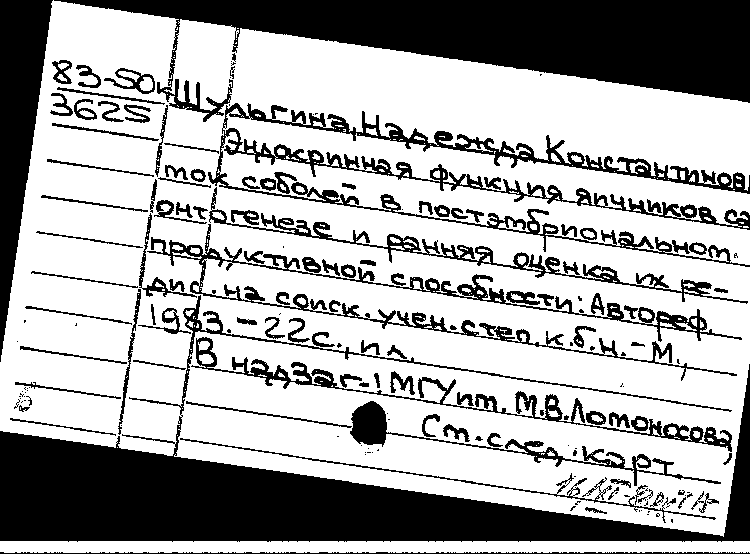 83-50к
3625
Шульгина, Надежда Константинов
Эндокринная функция яичников са
мок соболей в постэмбриональном
онтогенезе и ранняя оценка их ре-
продуктивной способности: Автореф.
дис. на соиск. учен. степ. к.б.н. - М.,
1983. - 22 с., ил.
В надзаг.: МГУ им. М.В. Ломоносова,
См. след. карт.